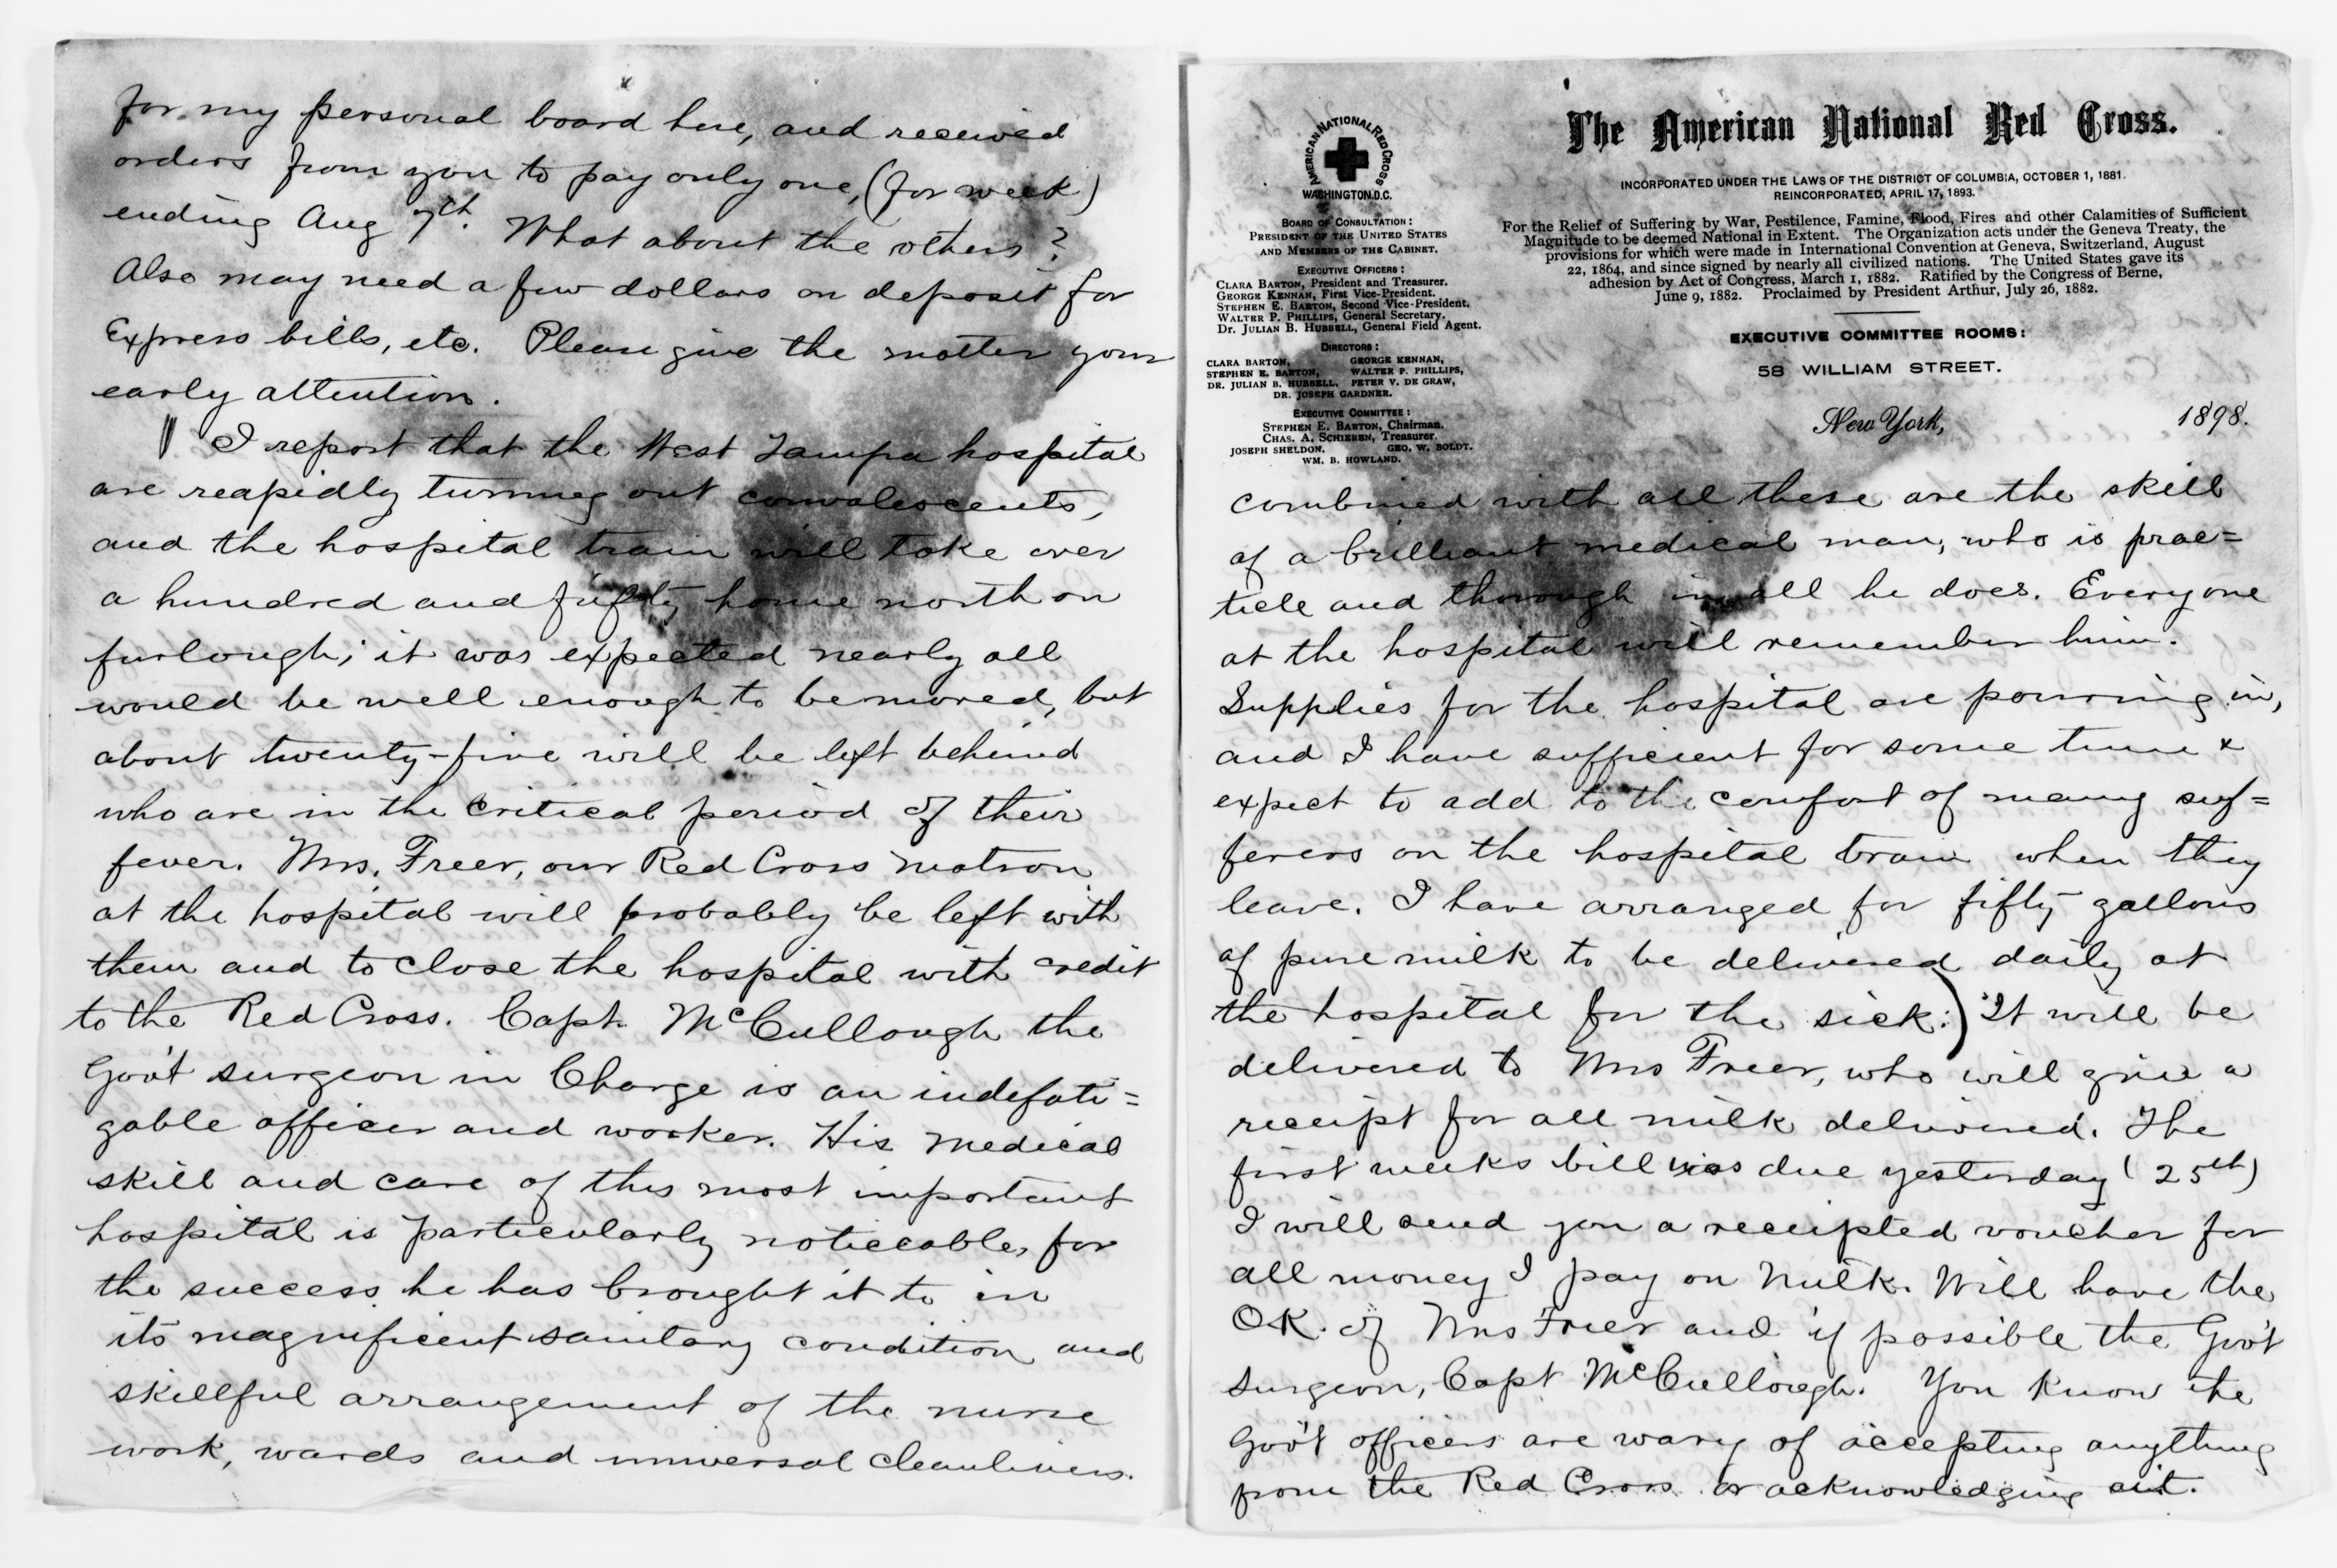 for my personal board here, and received
orders from you to pay only one, (for week)
ending Aug 7th. What about the others?
Also may need a few dollars on deposit for
Express bills, etc. Please give the matter your
early attention.
I report that the West Tampa hospital
are reapidly turning out convalescents,
and the hospital train will take over
a hundred and fifty home north on
furlough; it was expected nearly all
would be well enough to be moved, but
about twenty-five will be left behind
who are in the critical period of their
fever. Mrs. Freer, our Red Cross matron
at the hospital will probably be left with
them and to close the hospital with credit
to the Red Cross. Capt. McCullough the
Gov't surgeon in Charge is an indefati=
gable officer and worker. His medical
skill and care of this most important
hospital is particularly noticeable, for
the success he has brought it to in
its magnificent sanitary condition and
skillful arrangement of the nurse
work, wards and universal cleanliness.
AMERICAN NATIONAL RED CROSS
WASHINGTON.D.C.
BOARD OF CONSULTATION:
PRESIDENT OF THE UNITED STATES
AND MEMBERS OF THE CABINET.
EXECUTIVE OFFICERS:
CLARA BARTON, President and Treasurer.
GEORGE KENNAN, First Vice-President.
STEPHEN E. BARTON, Second Vice-President.
WALTER P. PHILLIPS, General Secretary.
Dr. JULIAN B. HUBBELL, General Field Agent.
DIRECTORS:
CLARA BARTON, GEORGE KENNAN,
STEPHEN E. BARTON, WALTER P. PHILLIPS,
DR. JULIAN B. HUBBELL, PETER V. DE GRAW,
DR. JOSEPH GARDNER.
EXECUTIVE COMMITTEE:
STEPHEN E. BARTON, Chairman.
CHAS. A. SCHIEREN, Treasurer.
JOSEPH SHELDON. GEO. W. BOLDT.
WM. B. HOWLAND.
The American National Red Cross.
INCORPORATED UNDER THE LAWS OF THE DISTRICT OF COLUMBIA, OCTOBER 1, 1881.
REINCORPORATED, APRIL 17, 1893.
For the Relief of Suffering by War, Pestilence, Famine, Flood, Fires and other Calamities of Sufficient
Magnitude to be deemed National in Extent. The Organization acts under the Geneva Treaty, the
provisions for which were made in International Convention at Geneva, Switzerland, August
22, 1864, and since signed by nearly all civilized nations. The United States gave its
adhesion by Act of Congress, March 1, 1882. Ratified by the Congress of Berne,
June 9, 1882. Proclaimed by President Arthur, July 26, 1882.
EXECUTIVE COMMITTEE ROOMS:
58 WILLIAM STREET.
New York, 1898.
combined with all these are the skill
of a brilliant medical man, who is prac=
ticle and thorough in all he does. Everyone
at the hospital will remember him.
Supplies for the hospital are pourring in,
and I have sufficient for some time &
expect to add to the comfort of many suf=
ferers on the hospital train when they
leave. I have arranged for fifty gallons
of pure milk to be delivered daily at
the hospital for the sick.) It will be
delivered to Mrs Freer, who will give a
receipt for all milk delivered. The
first weeks bill was due yesterday (25th)
I will send you a receipted voucher for
all money I pay on Milk. Will have the
O.K. of Mrs Freer and if possible the Gov't
surgeon, Capt McCullough. You know the
Gov't officers are wary of accepting anything
from the Red Cross or acknowledging it.